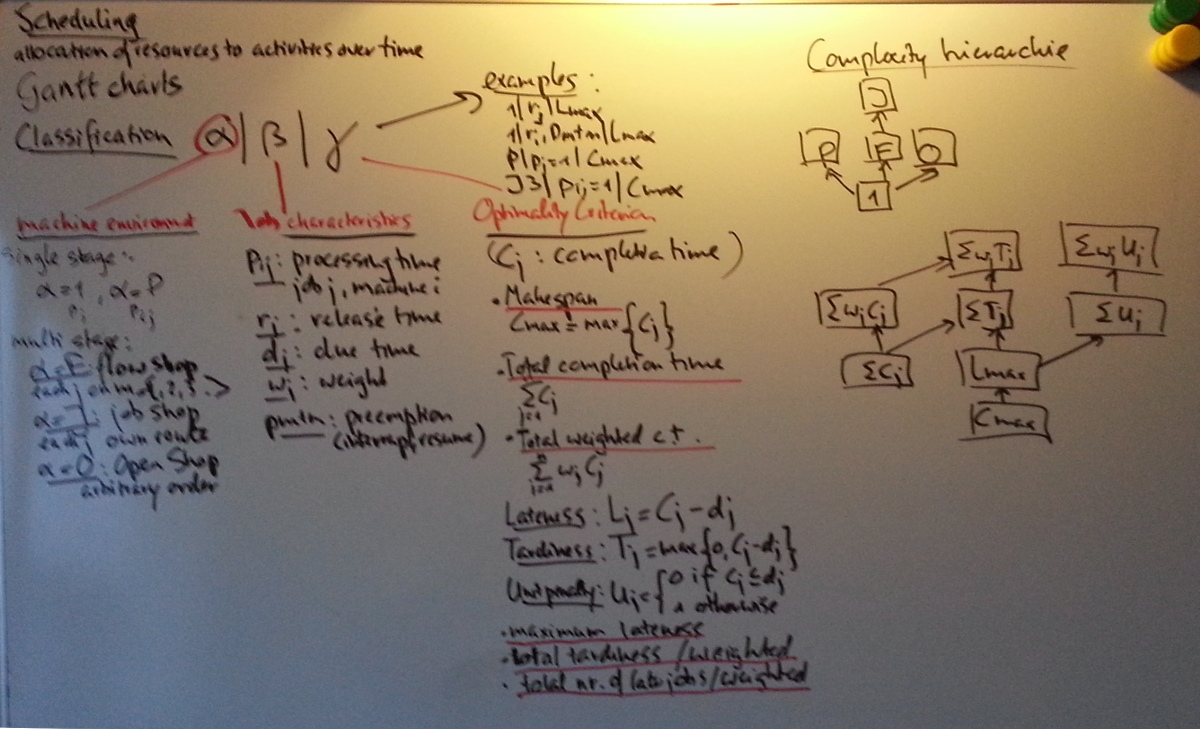 Scheduling
allocation of resources to activities over time
Gantt charts
Classification α | β | γ
examples :
1 | rj | Lmax
1 | rj, pmtn | Lmax
P | pj = 1 | Cmax
J3 | pij = 1 | Cmax
machine environmt
single stage :
α = 1 , α = P
pj pij
multi stage :
α = F flow shop
each j on m 1, 2, 3 . >
α = J : job shop
each j own route
α = O : Open Shop
arbitrary order
Job characteristics
pij : processing time
job j , machine i
rj : release time
dj : due time
wj : weight
pmtn : preemption
(interrupt, resume)
Optimality Criterion
(Cj : completion time)
• Makespan
Cmax = max {Cj}
• Total completion time
Σ Cj
j=1
• Total weighted ct .
n
Σ wj Cj
j=1
Lateness : Lj = Cj - dj
Tardiness : Tj = max {0, Cj - dj}
Unit penalty : Uj = { 0 if Cj ≤ dj
1 otherwise
• maximum lateness
• total tardiness / weighted
• total nr. of late jobs / weighted
Complexity hierarchie
J
P F O
1
Σ wj Tj Σ wj Uj
Σ wj Cj Σ Tj Σ Uj
Σ Cj Lmax
Cmax